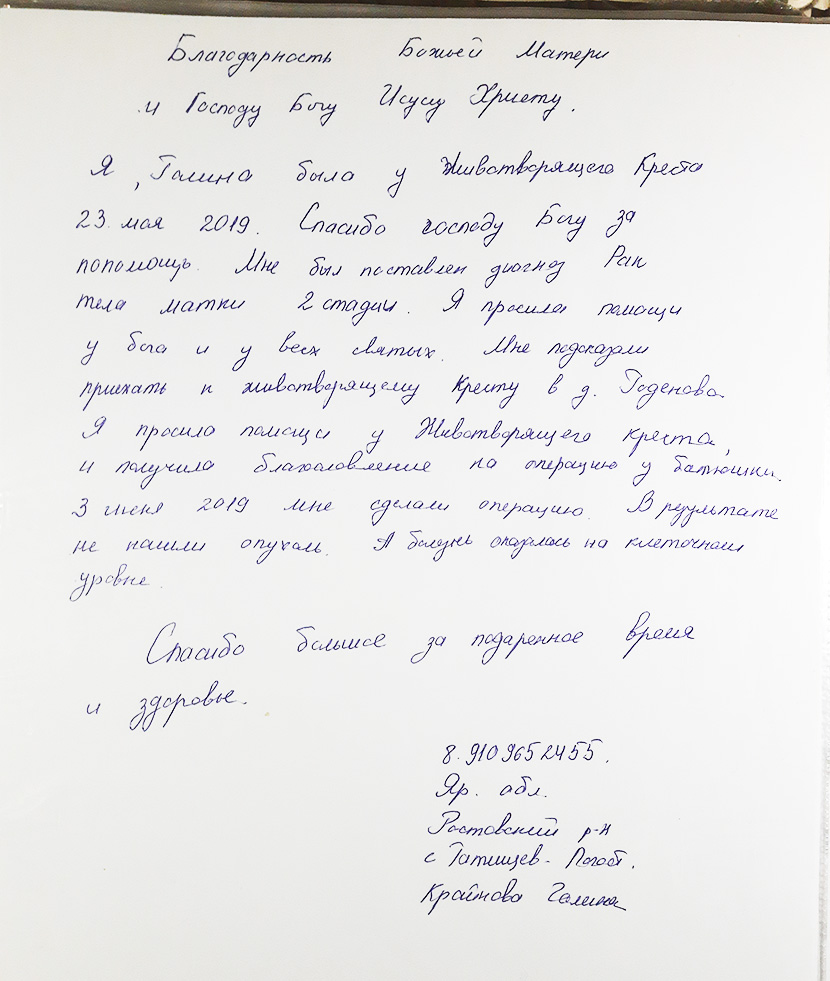 Благодарность Божьей Матери
и Господу Богу Исусу Христу.
Я, Галина была у Животворящего Креста
23 мая 2019. Спасибо господу Богу за
попомощь. Мне был поставлен диогноз Рак
тела матки 2 стадии. Я просила помощи
у бога и у всех святых. Мне подсказали
приехать к животворящему Кресту в д. Годенова.
Я просила помощи у Животворящего креста,
и получила благословление на операцию у батюшки.
3 июня 2019 мне сделали операцию. В результате
не нашли опухоль. А болезнь оказалось на клеточном
уровне.
Спасибо большое за подаренное время
и здоровье.
8.9109652455.
Яр. обл.
Ростовский р-н
с Татищев-Погост.
Крайнова Галина